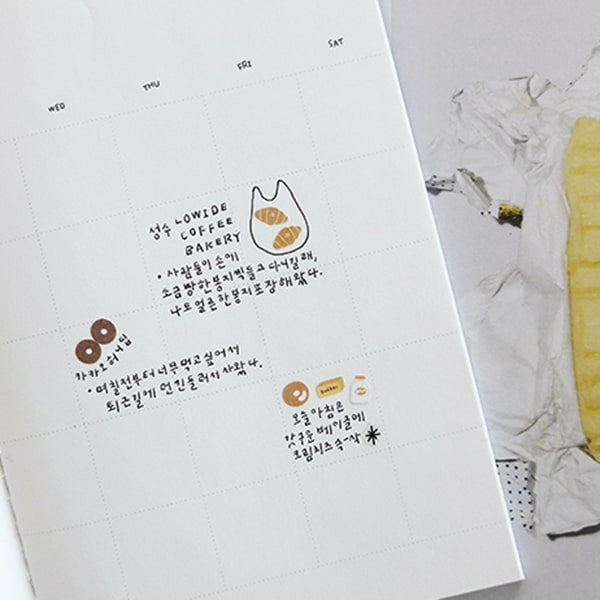 WED THU FRI SAT
성수 LOWIDE
COFFEE
BAKERY
• 사람들이 손에
소금빵 한봉지씩 들고 다니길래,
나도 얼른 한봉지 포장해왔다.
카카오허니딥
• 며칠전부터 너무 먹고싶어서
퇴근길에 던킨 들러서 사왔다.
butter
오늘 아침은
갓구운 베이글에
크림치즈 슥-삭